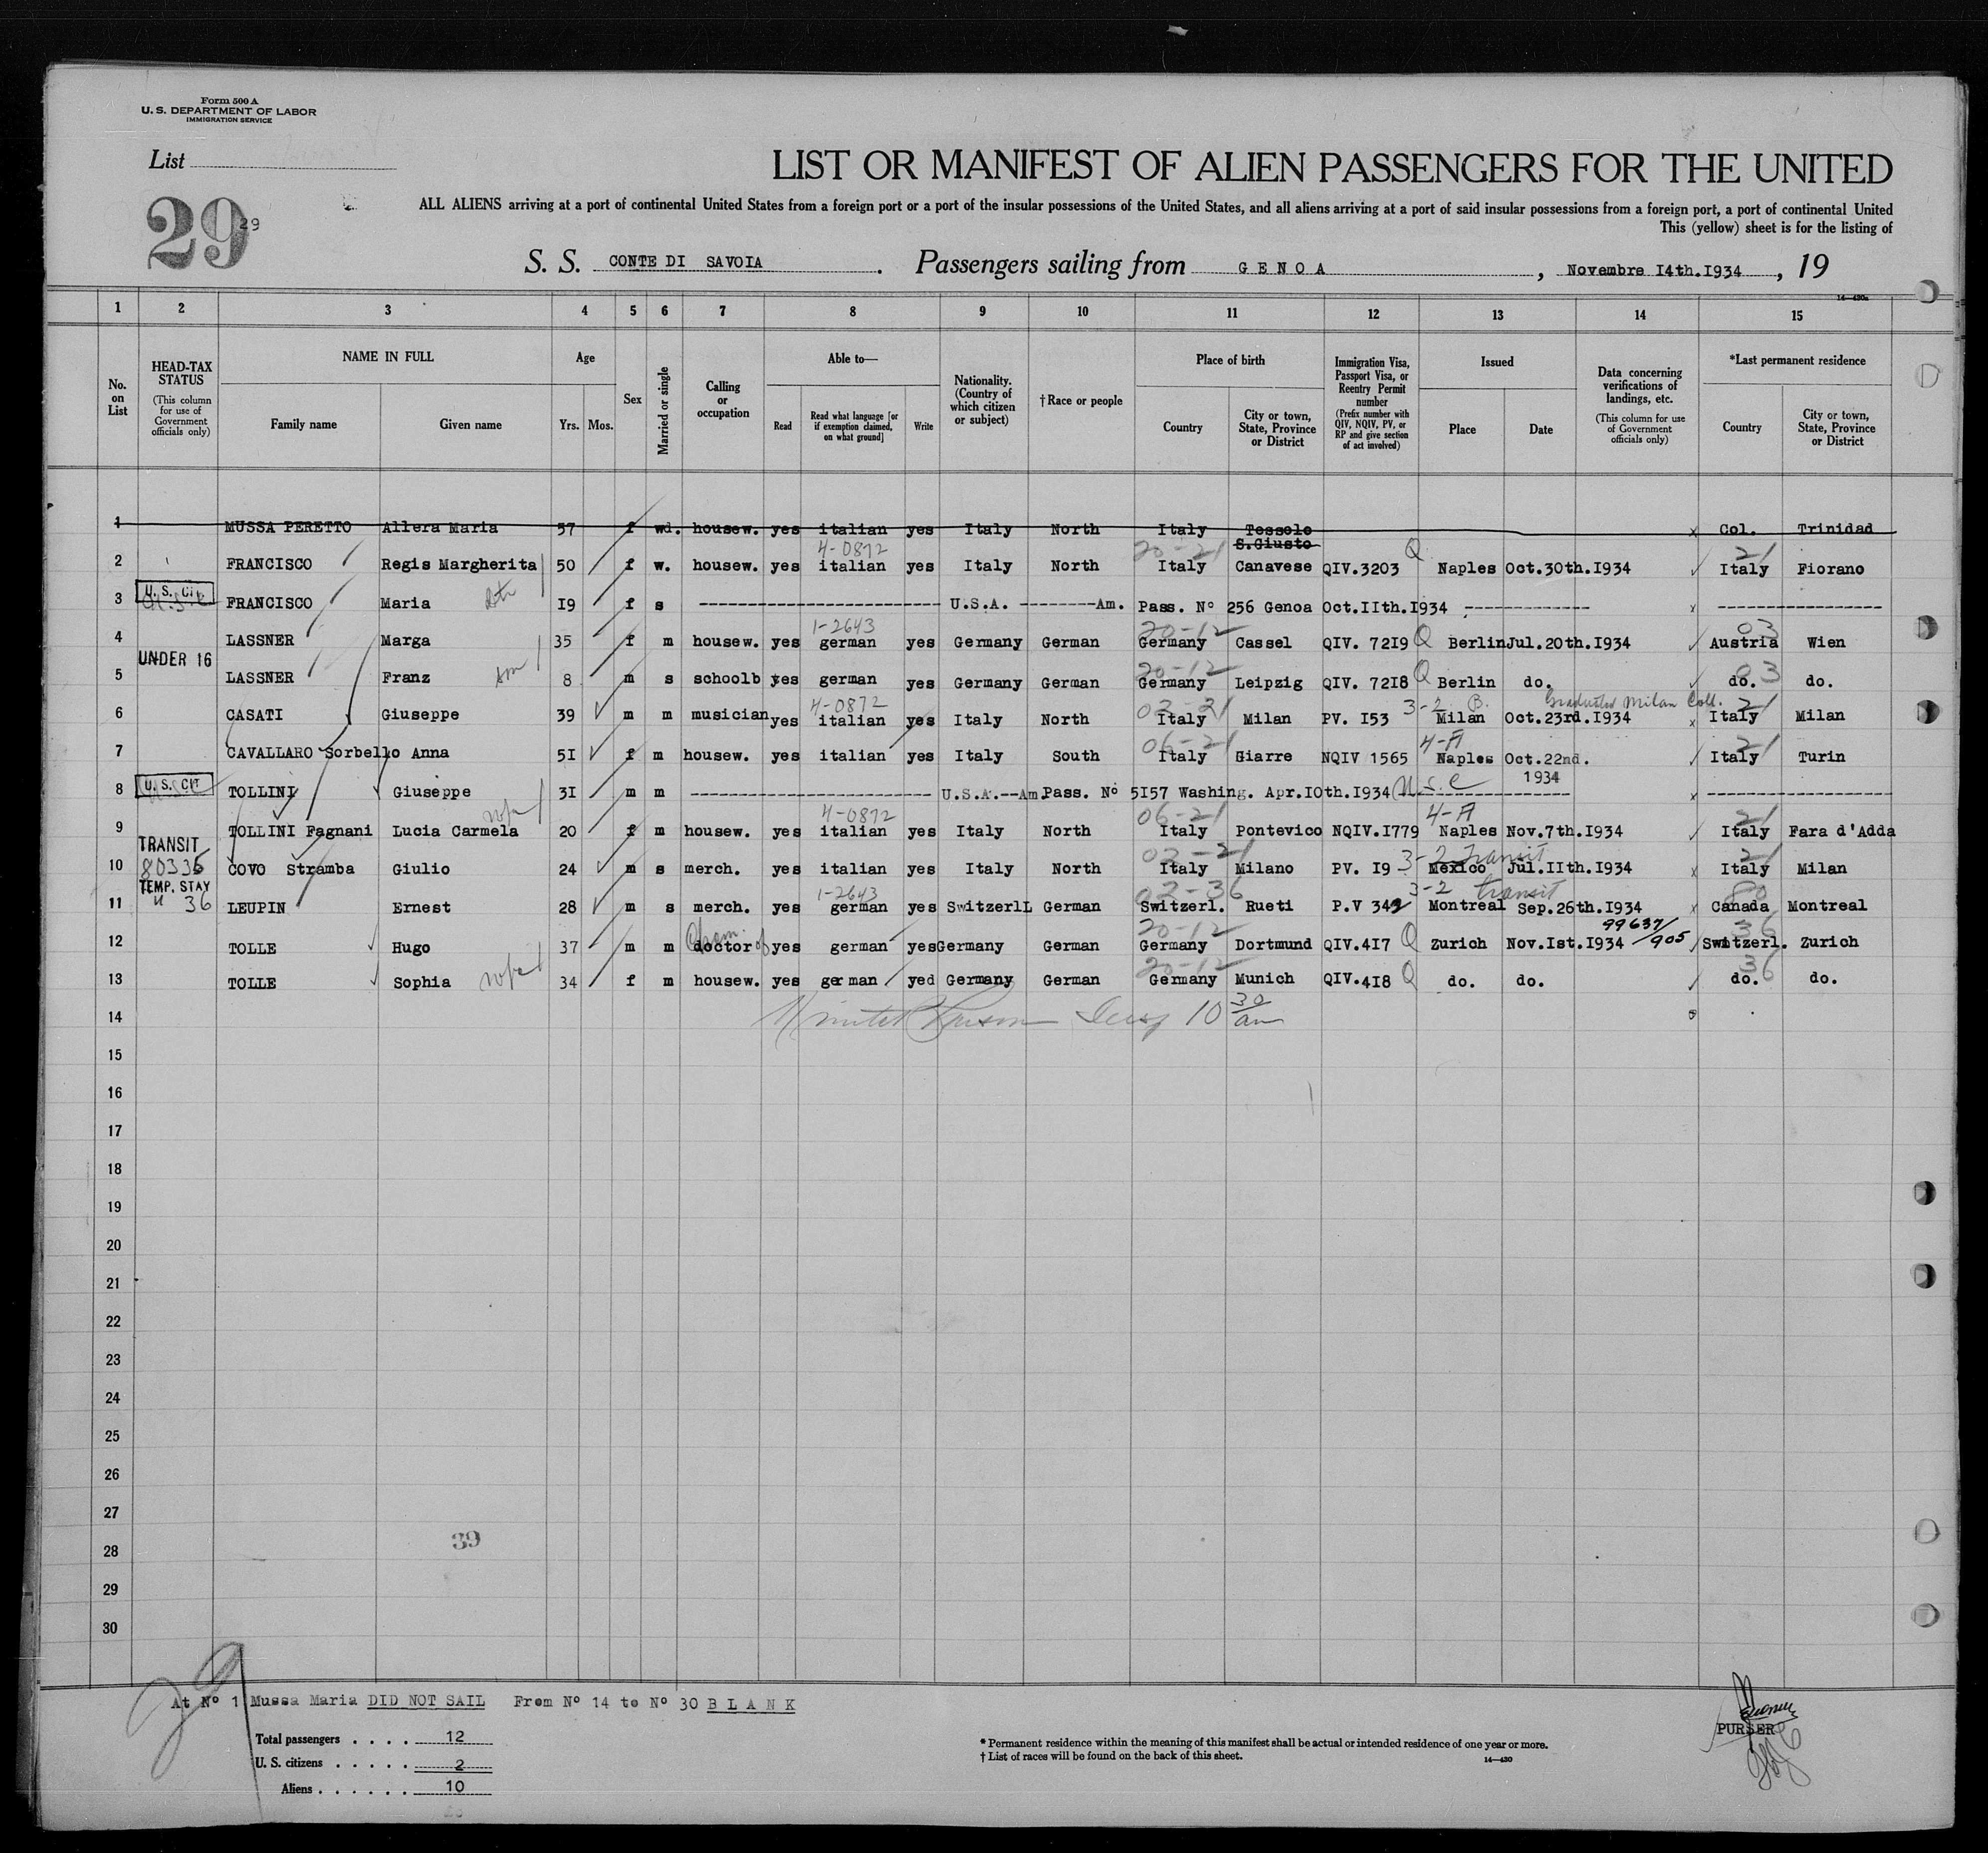 Form 500 A
U. S. DEPARTMENT OF LABOR
IMMIGRATION SERVICE
List
29
29
LIST OR MANIFEST OF ALIEN PASSENGERS FOR THE UNITED
ALL ALIENS arriving at a port of continental United States from a foreign port or a port of the insular possessions of the United States, and all aliens arriving at a port of said insular possessions from a foreign port, a port of continental United
This (yellow) sheet is for the listing of
S. S. CONTE DI SAVOIA . Passengers sailing from GENOA , Novembre I4th.I934 , 19
14—430a
1 2 3 4 5 6 7 8 9 10 11 12 13 14 15
No. on List
HEAD-TAX STATUS (This column for use of Government officials only)
NAME IN FULL
Family name Given name
Age
Yrs. Mos.
Sex
Married or single
Calling or occupation
Able to—
Read
Read what language [or if exemption claimed, on what ground]
Write
Nationality. (Country of which citizen or subject)
† Race or people
Place of birth
Country
City or town, State, Province or District
Immigration Visa, Passport Visa, or Reentry Permit number (Prefix number with QIV, NQIV, PV, or RP and give section of act involved)
Issued
Place Date
Data concerning verifications of landings, etc. (This column for use of Government officials only)
*Last permanent residence
Country
City or town, State, Province or District
1 MUSSA PERETTO Allera Maria 57 f wd. housew. yes italian yes Italy North Italy Tossolo x Col. Trinidad
4-0872 20-21 S.Giusto Q 21
2 FRANCISCO Regis Margherita 50 f w. housew. yes italian yes Italy North Italy Canavese QIV.3203 Naples Oct.30th.I934 Italy Fiorano
U. S. CIT.
3 FRANCISCO Maria I9 f s U.S.A. Am. Pass. Nº 256 Genoa Oct.IIth.I934 x
1-2643 20-12 03
4 LASSNER Marga 35 f m housew. yes german yes Germany German Germany Cassel QIV. 72I9 Q Berlin Jul.20th.I934 Austria Wien
UNDER 16 son 20-12 03
5 LASSNER Franz 8 m s schoolb yes german yes Germany German Germany Leipzig QIV. 72I8 Q Berlin do. do. do.
4-0872 02-21 3-2 B. Graduated Milan Coll. 21
6 CASATI Giuseppe 39 m m musician yes italian yes Italy North Italy Milan PV. I53 Milan Oct.23rd.I934 x Italy Milan
06-21 4-A 21
7 CAVALLARO Sorbello Anna 5I f m housew. yes italian yes Italy South Italy Giarre NQIV 1565 Naples Oct.22nd. 1934 Italy Turin
U. S. CIT
8 TOLLINI Giuseppe 3I m m U.S.A.--Am. Pass. Nº 5I57 Washing. Apr.I0th.I934 U.S.C x
wife 4-0872 06-21 4-A 21
9 TOLLINI Fagnani Lucia Carmela 20 f m housew. yes italian yes Italy North Italy Pontevico NQIV.I779 Naples Nov.7th.I934 Italy Fara d'Adda
TRANSIT
80336 02-21 3-2 Transit 21
10 COVO Stramba Giulio 24 m s merch. yes italian yes Italy North Italy Milano PV. I9 Mexico Jul.IIth.I934 x Italy Milan
TEMP. STAY
" 36 1-2643 02-36 3-2 transit 80
11 LEUPIN Ernest 28 m s merch. yes german yes Switzerll German Switzerl. Rueti P.V 349 Montreal Sep.26th.I934 x Canada Montreal
Chem. 20-12 99637/905 36
12 TOLLE Hugo 37 m m doctor of yes german yes Germany German Germany Dortmund QIV.4I7 Q Zurich Nov.Ist.I934 Switzerl. Zurich
wife 20-12 36
13 TOLLE Sophia 34 f m housew. yes german yed Germany German Germany Munich QIV.4I8 Q do. do. do. do.
14 10 30 am
15
16
17
18
19
20
21
22
23
24
25
26
27
28
29
30
39
29
At Nº 1 Mussa Maria DID NOT SAIL From Nº 14 to Nº 30 BLANK
Total passengers . . . . 12
U. S. citizens . . . . . 2
Aliens . . . . . . 10
* Permanent residence within the meaning of this manifest shall be actual or intended residence of one year or more.
† List of races will be found on the back of this sheet.
14—430
PURSER